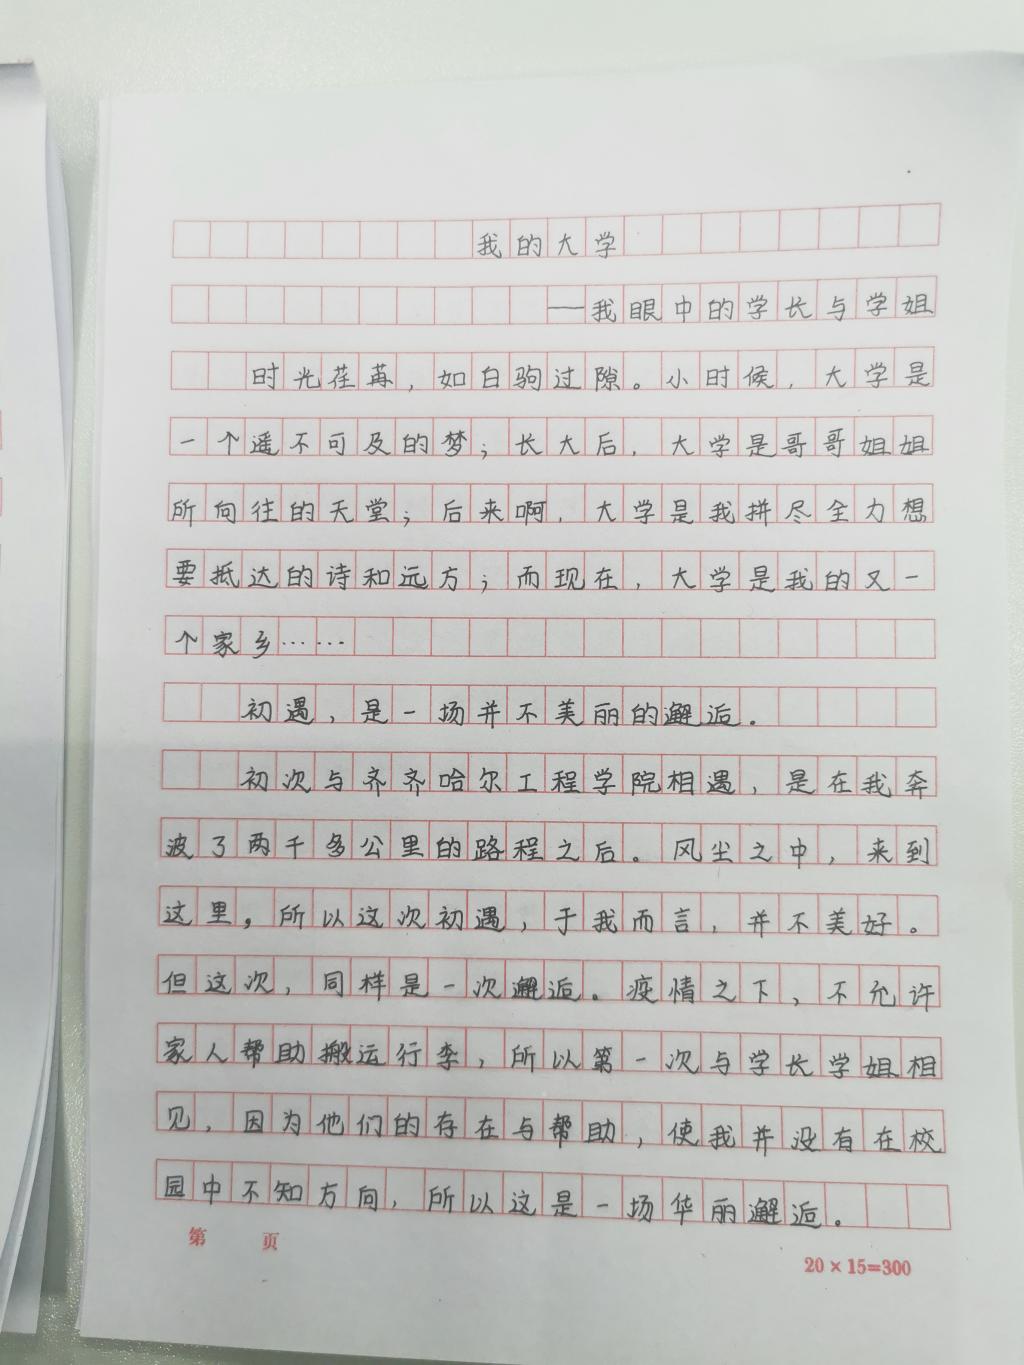 我的大学
——我眼中的学长与学姐
时光荏苒，如白驹过隙。小时候，大学是
一个遥不可及的梦；长大后，大学是哥哥姐姐
所向往的天堂；后来啊，大学是我拼尽全力想
要抵达的诗和远方；而现在，大学是我的又一
个家乡……
初遇，是一场并不美丽的邂逅。
初次与齐齐哈尔工程学院相遇，是在我奔
波了两千多公里的路程之后。风尘之中，来到
这里，所以这次初遇，于我而言，并不美好。
但这次，同样是一次邂逅。疫情之下，不允许
家人帮助搬运行李，所以第一次与学长学姐相
见，因为他们的存在与帮助，使我并没有在校
园中不知方向，所以这是一场华丽邂逅。
第 页
20×15=300